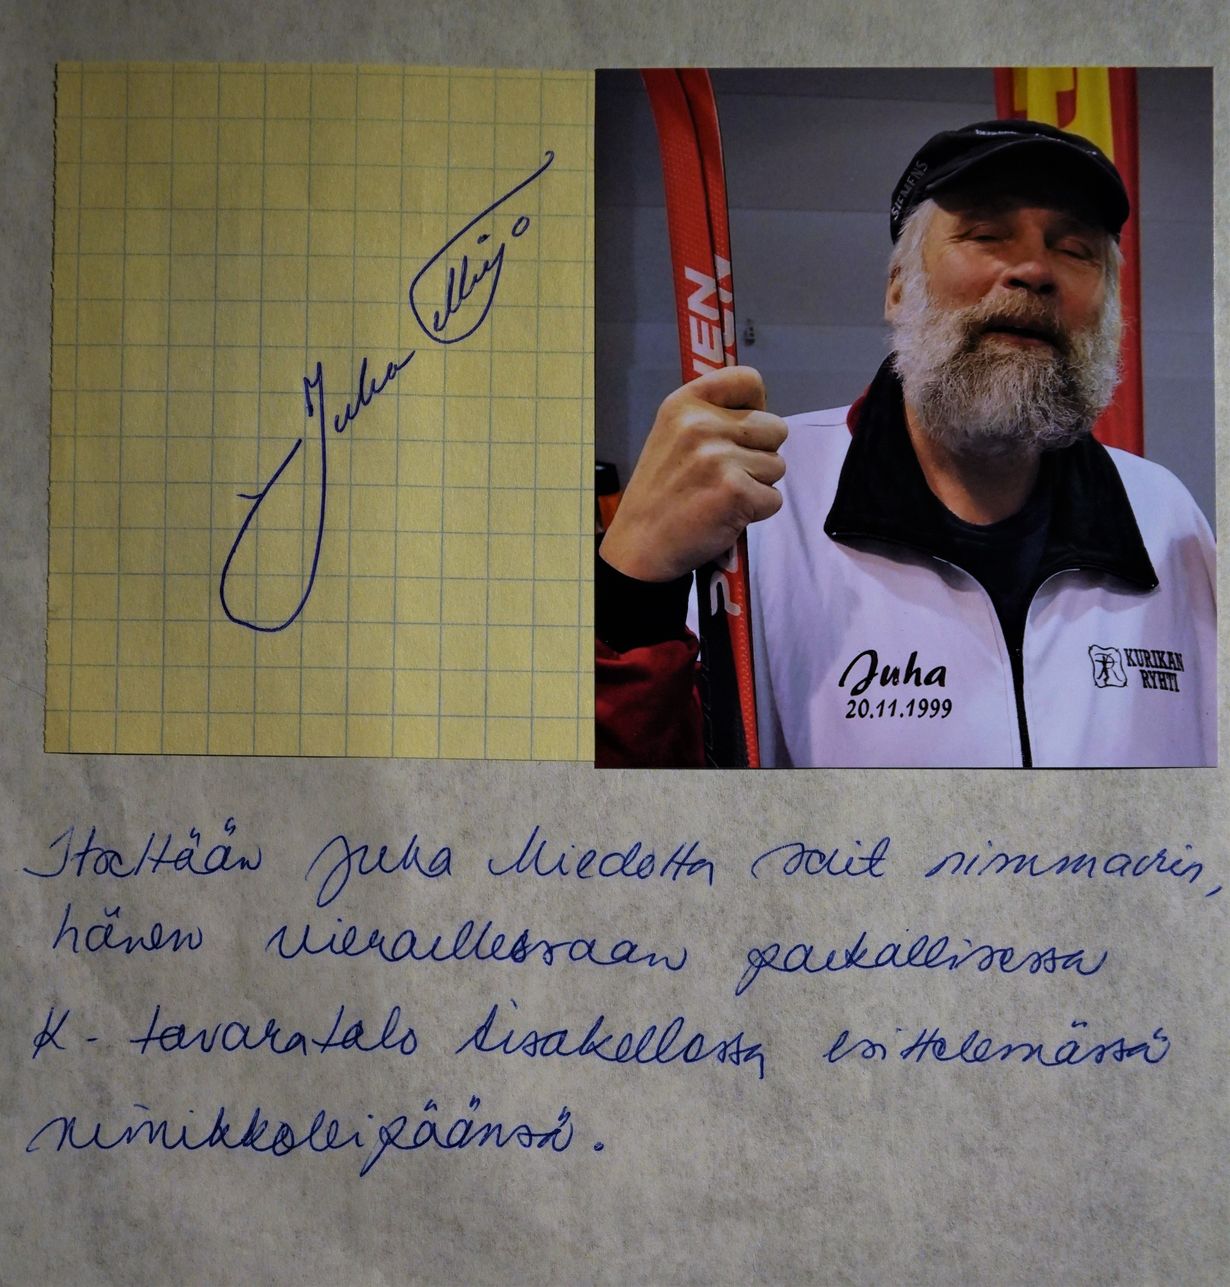 Juha Mieto
SIEMENS
VEN
Juha
20.11.1999
KURIKAN
RYHTI
Itseltään Juha Miedolta sait nimmarin,
hänen vieraillessaan paikallisessa
K-tavaratalo Lisakellossa esittelemässä
nimikkoleipäänsä.